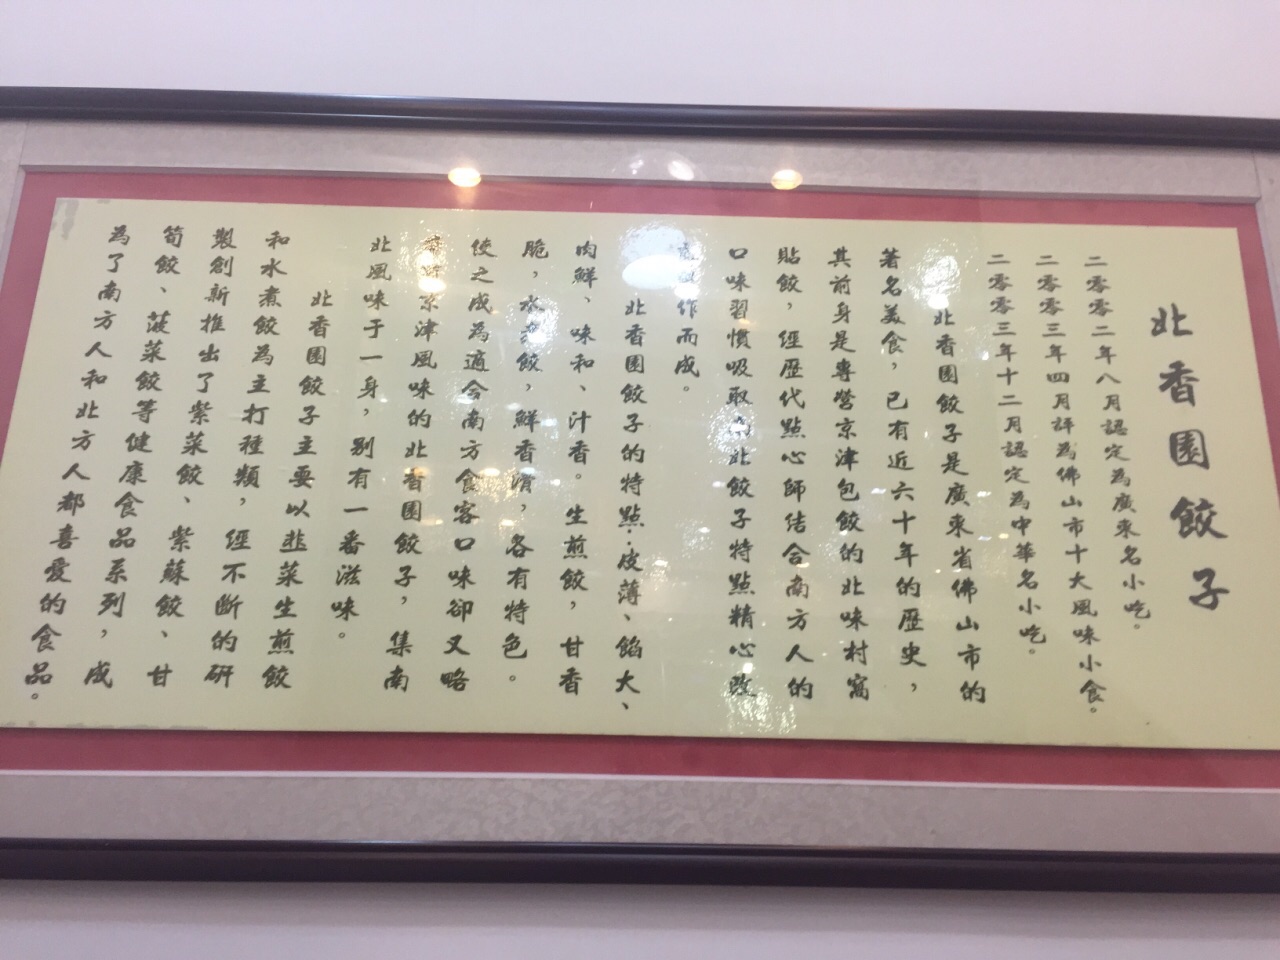 北香園餃子
二零零二年八月認定為廣東名小吃。
二零零三年四月評為佛山市十大風味小食。
二零零三年十二月認定為中華名小吃。
北香園餃子是廣東省佛山市的
著名美食，已有近六十年的歷史，
其前身是專營京津包餃的北味村窩
貼餃，經歷代點心師結合南方人的
口味習慣吸取南北餃子特點精心改
作而成。
北香園餃子的特點：皮薄、餡大、
肉鮮、味和、汁香。生煎餃，甘香
脆，水煮餃，鮮香滑，各有特色。
使之成為適合南方食客口味卻又略
京津風味的北香園餃子，集南
北風味于一身，别有一番滋味。
北香園餃子主要以韭菜生煎餃
和水煮餃為主打種類，經不斷的研
製創新推出了紫菜餃、紫蘇餃、甘
筍餃、菠菜餃等健康食品系列，成
為了南方人和北方人都喜愛的食品。